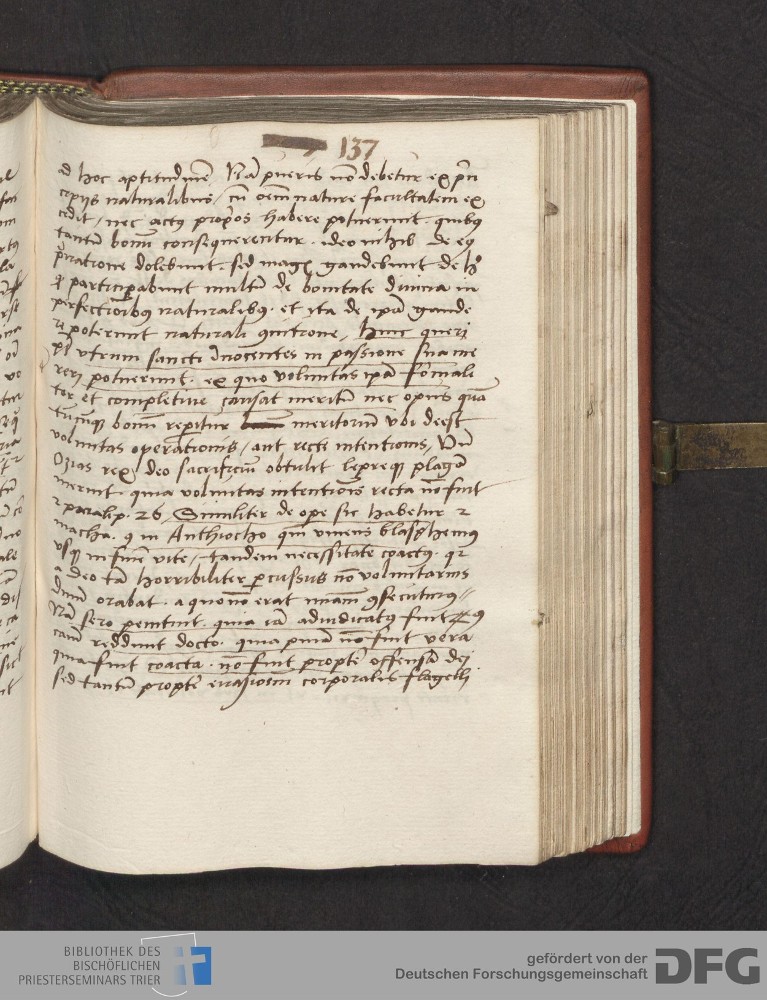 137
ad hoc aptitudinē Nā pueris nō debetur ex prin
cipijs naturalibus / cū oēm nature facultatem ex
cedit / nec actus propios habere potuerunt . quibus
tantū bonū consequerentur . ideo nihil de eius
priuatione dolebunt . sed magis gaudebunt de hoc
qd participabunt multū de bonitate diuina in
perfectionibus naturalibus . et ita de ipā gaude
re poterunt naturali cognitione / Hinc queri
utrum sancti Innocentes in passione sua me
reri potuerunt . ex quo voluntas ipā formali
ter et completiue causat meritū nec opus quā
tūcūque bonū reperitur meritoriū ubi deest
voluntas operationis / aut recte intentionis / Nū
Ozias rex deo sacrificiū obtulit lepreque plagā
meruit . quia voluntas intentionis recta nō fuit
2 paralip . 26 , Similiter de ope sic habetur 2
macha . 9 in Anthiocho qui viuens blasphemus
usque in finē vite / tandem necessitate coactus . qr
a deo tā horribiliter percussus nō voluntarius
dnm orabat . a quo nō erat miam consecuturus //
Nā sero penituit . quia iā adiudicatus fuit
cām reddunt docto . quia pnia nō fuit vera
quia fuit coacta . nō fuit propter offensā dei
sed tantū propter euasionem corporalis flagelli
BIBLIOTHEK DES
BISCHÖFLICHEN
PRIESTERSEMINARS TRIER
gefördert von der
Deutschen Forschungsgemeinschaft DFG